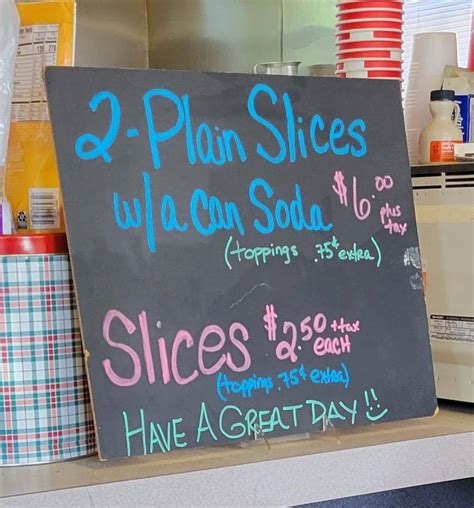 2-Plain Slices
w/a can Soda $6.00 plus tax
(toppings .75¢ extra)
Slices $2.50 + tax each
(toppings .75¢ extra)
HAVE A GREAT DAY!